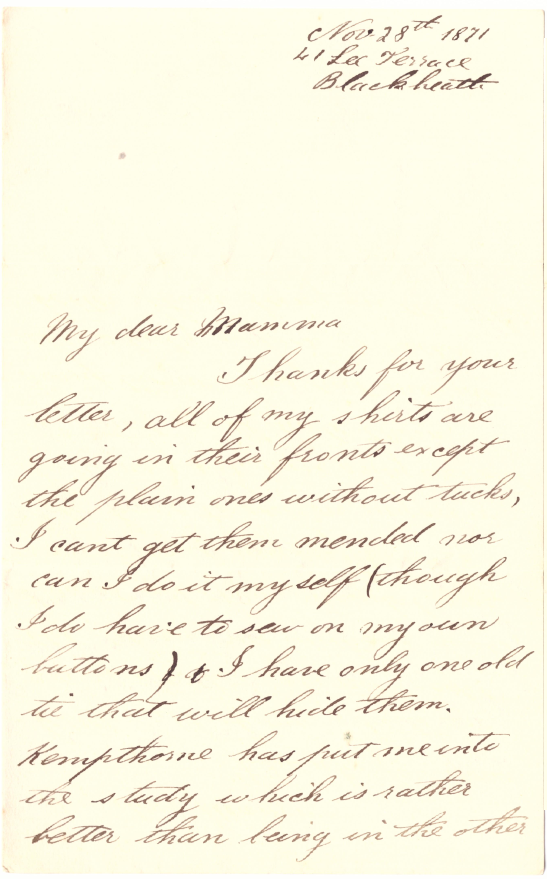 Nov 28th 1871
41 Lee Terrace
Blackheath
My dear Mamma
Thanks for your
letter, all of my shirts are
going in their fronts except
the plain ones without tucks,
I cant get them mended nor
can I do it myself (though
I do have to sew on my own
buttons) & I have only one old
tie that will hide them.
Kempthorne has put me into
the study which is rather
better than being in the other